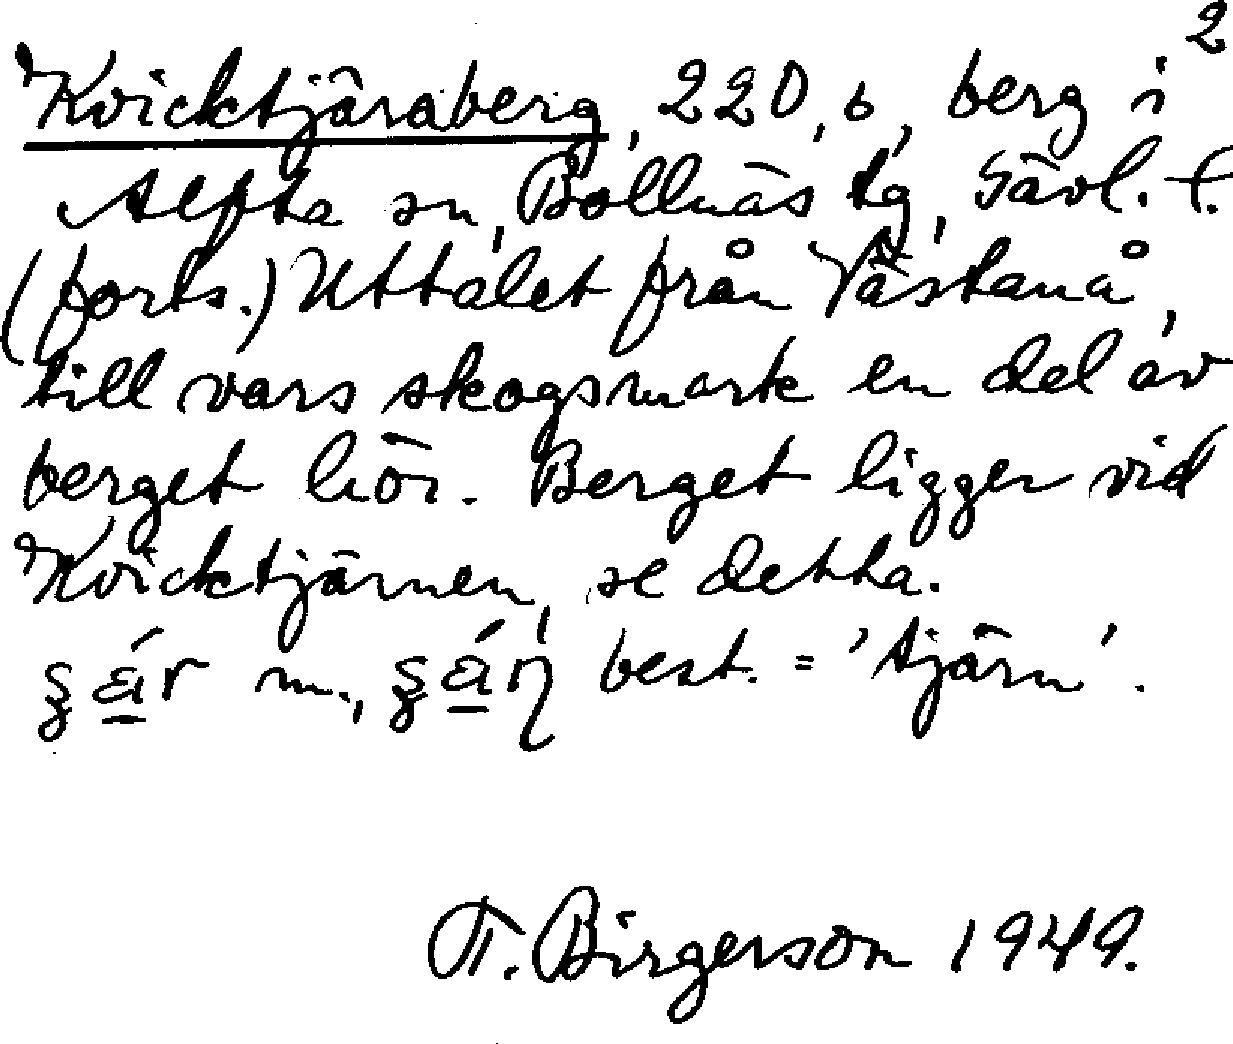 2
Kvicktjäraberg, 220, b, berg i
Alfta sn, Bollnäs tg, Gävl. l.
(forts.) Uttalet från Västanå,
till vars skogsmark en del av
berget hör. Berget ligger vid
Kvicktjärnen, se detta.
m., best. = 'tjärn'.
T. Birgerson 1949.